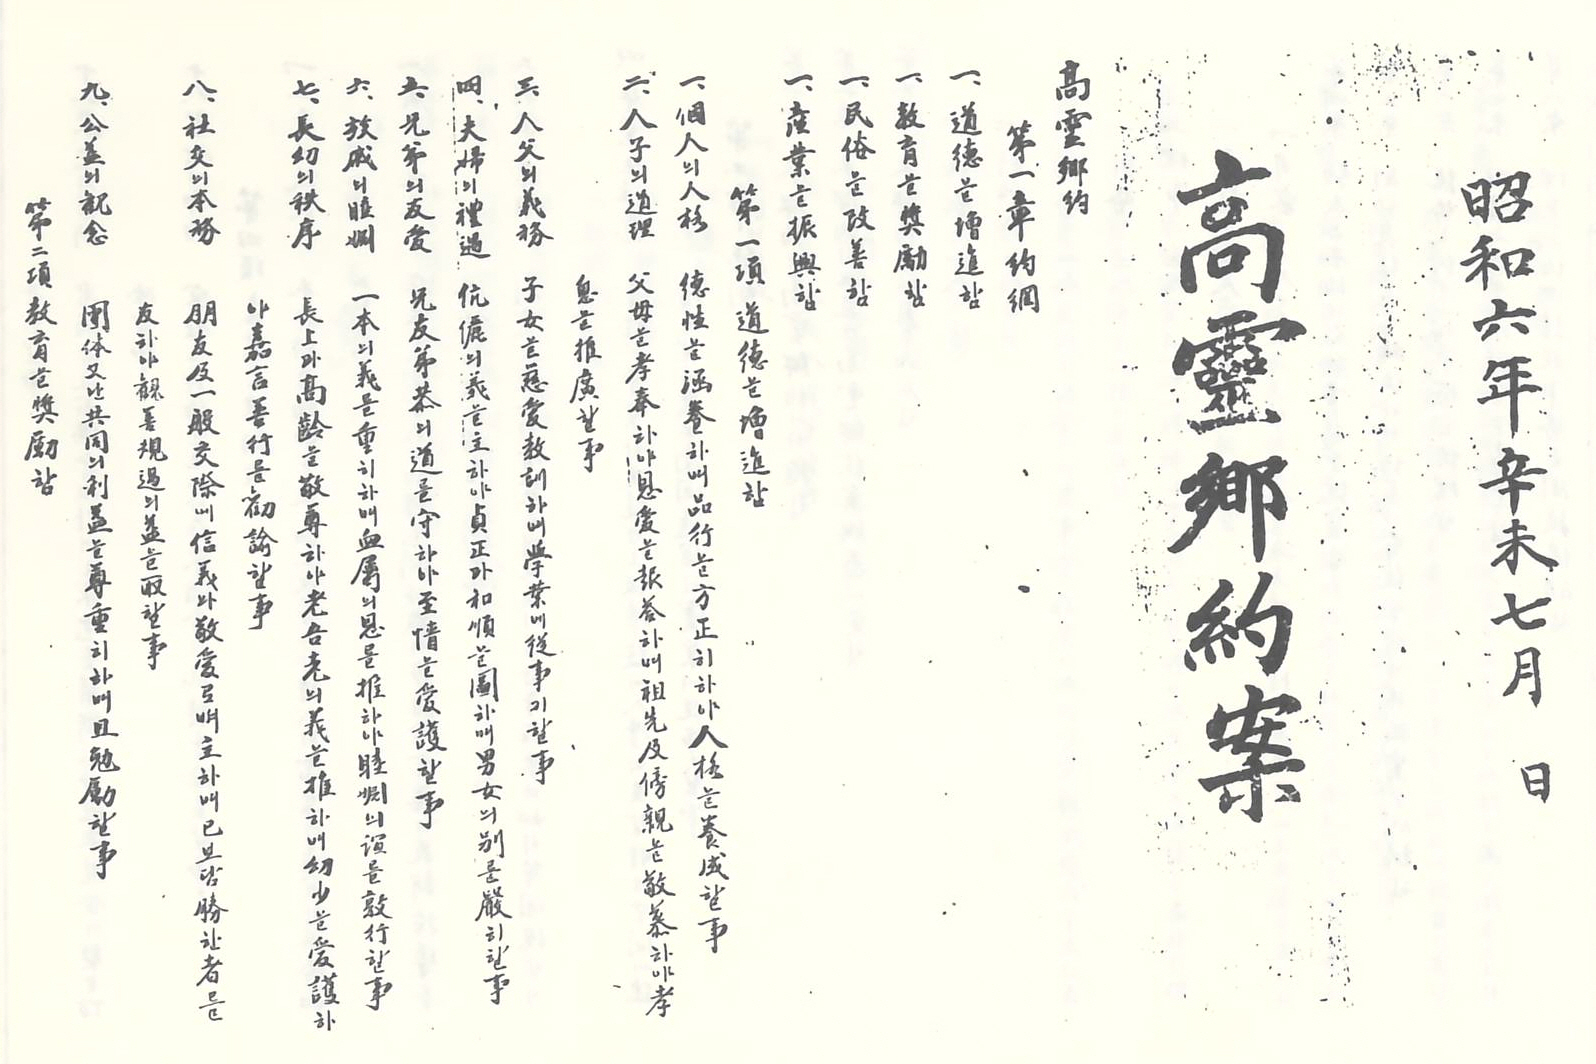 昭和六年辛未七月　日
高靈鄕約案
高靈鄕約
第一章 約綱
一、道德을增進함
一、敎育을奬勵함
一、民俗을改善함
一、産業을振興함
第一項 道德을增進함
一、個人의人格 德性을涵養하며品行을方正히하야人格을養成할事
二、人子의道理 父母를孝奉하야恩愛를報答하며祖先及傍親을敬慕하야孝
思를推廣할事
三、人父의義務 子女를慈愛敎訓하며學業에從事키할事
四、夫婦의禮遇 伉儷의義를主하야貞正과和順을圖하며男女의別을嚴히할事
五、兄弟의友愛 兄友弟恭의道를守하야至情을愛護할事
六、族戚의睦婣 一本의義를重히하며血屬의恩을推하야睦婣의誼를敦行할事
七、長幼의秩序 長上과高齡을敬尊하야老吾老의義를推하며幼少를愛護하
야嘉言善行을勸諭할事
八、社交의本務 朋友及一般交際에信義와敬愛로써主하며己보담勝한者를
友하야觀善規過의益을取할事
九、公益의觀念 團体又난共同의利益을尊重히하며且勉勵할事
第二項 敎育을奬勵함